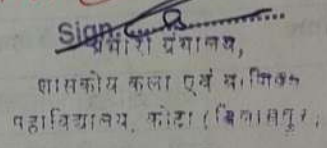 Sign..............
प्रभारी ग्रंथालय,
शासकीय कला एवं वाणिज्य
महाविद्यालय, कोटा (बिलासपुर)